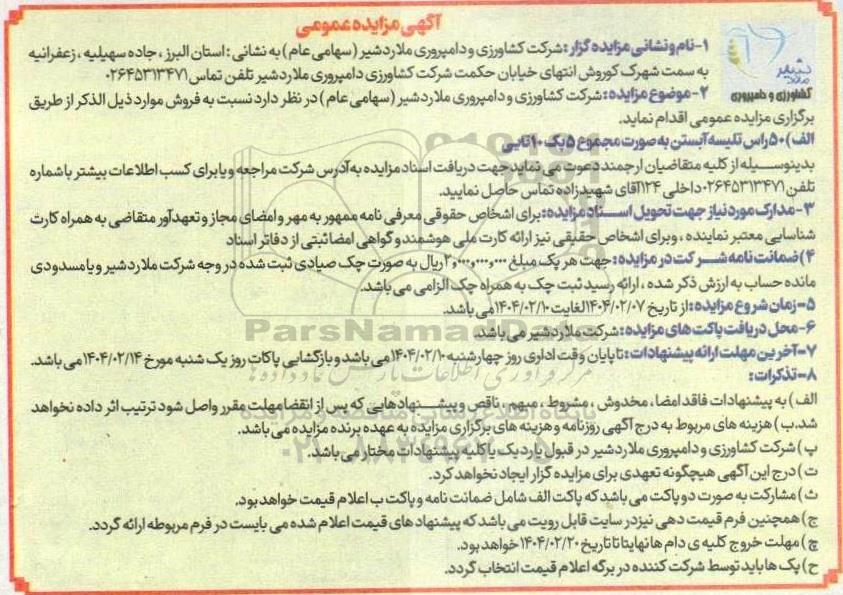 آگهی مزایده عمومی
۱-نام و نشانی مزایده گزار: شرکت کشاورزی و دامپروری ملارد شیر (سهامی عام) به نشانی: استان البرز، جاده سهیلیه، زعفرانیه
به سمت شهرک کوروش انتهای خیابان حکمت شرکت کشاورزی دامپروری ملارد شیر تلفن تماس ۰۲۶۴۵۳۱۳۴۷۱
کشاورزی و دامپروری
۲-موضوع مزایده: شرکت کشاورزی و دامپروری ملارد شیر (سهامی عام) در نظر دارد نسبت به فروش موارد ذیل الذکر از طریق
برگزاری مزایده عمومی اقدام نماید.
الف) ۵۰ راس تلیسه آبستن به صورت مجموع ۵ پک ۱۰ تایی
بدینوسیله از کلیه متقاضیان ارجمند دعوت می نماید جهت دریافت اسناد مزایده به آدرس شرکت مراجعه و یا برای کسب اطلاعات بیشتر با شماره
تلفن ۰۲۶۴۵۳۱۳۴۷۱ داخلی ۱۲۴ آقای شهیدزاده تماس حاصل نمایید.
۳-مدارک مورد نیاز جهت تحویل اسناد مزایده: برای اشخاص حقوقی معرفی نامه ممهور به مهر و امضای مجاز و تعهدآور متقاضی به همراه کارت
شناسایی معتبر نماینده، و برای اشخاص حقیقی نیز ارائه کارت ملی هوشمند و گواهی امضا ثبتی از دفاتر اسناد
۴) ضمانت نامه شرکت در مزایده: جهت هر پک مبلغ ۲,۰۰۰,۰۰۰,۰۰۰ ریال به صورت چک صیادی ثبت شده در وجه شرکت ملارد شیر و یا مسدودی
مانده حساب به ارزش ذکر شده، ارائه رسید ثبت چک به همراه چک الزامی می باشد.
۵-زمان شروع مزایده: از تاریخ ۱۴۰۴/۰۲/۰۷ لغایت ۱۴۰۴/۰۲/۱۰ می باشد.
۶-محل دریافت پاکت های مزایده: شرکت ملارد شیر می باشد.
۷-آخرین مهلت ارائه پیشنهادات: تا پایان وقت اداری روز چهارشنبه ۱۴۰۴/۰۲/۱۰ می باشد و بازگشایی پاکات روز یک شنبه مورخ ۱۴۰۴/۰۲/۱۴ می باشد.
۸-تذکرات:
الف) به پیشنهادات فاقد امضا، مخدوش، مشروط، مبهم، ناقص و پیشنهادهایی که پس از انقضا مهلت مقرر واصل شود ترتیب اثر داده نخواهد
شد. ب) هزینه های مربوط به درج آگهی روزنامه و هزینه های برگزاری مزایده به عهده برنده مزایده می باشد.
پ) شرکت کشاورزی و دامپروری ملارد شیر در قبول یا رد یک یا کلیه پیشنهادات مختار می باشد.
ت) درج این آگهی هیچگونه تعهدی برای مزایده گزار ایجاد نخواهد کرد.
ث) مشارکت به صورت دو پاکت می باشد که پاکت الف شامل ضمانت نامه و پاکت ب اعلام قیمت خواهد بود.
ج) همچنین فرم قیمت دهی نیز در سایت قابل رویت می باشد که پیشنهاد های قیمت اعلام شده می بایست در فرم مربوطه ارائه گردد.
چ) مهلت خروج کلیه ی دام ها نهایتا تا تاریخ ۱۴۰۴/۰۲/۲۰ خواهد بود.
ح) پک ها باید توسط شرکت کننده در برگه اعلام قیمت انتخاب گردد.
ParsNamadData